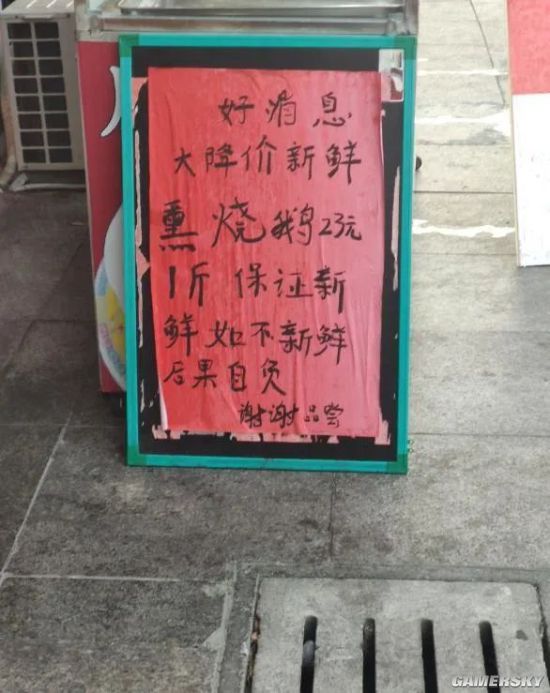 好消息
大降价新鲜
熏烧鹅23元
1斤保证新
鲜如不新鲜
后果自负
谢谢品尝
GAMERSKY